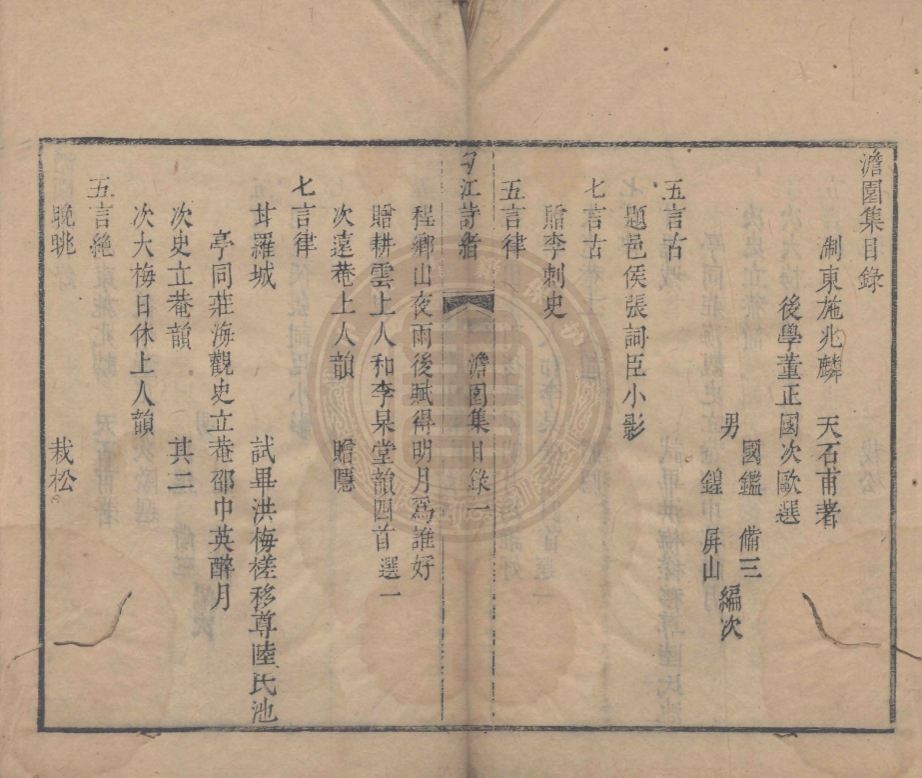 澹園集目錄
淛東施兆麟 天石甫著
後學董正國次歐選
男 國鑑 備三
鍟 屏山 編次
五言古
題邑侯張詞臣小影
七言古
贈李刺史
五言律
勾江詩緒 澹園集目錄 一
程鄉山夜雨後賦得明月爲誰好
贈耕雲上人和李杲堂韻四首選一
次遠菴上人韻 贈隱
七言律
苷羅城 試畢洪梅槎移尊陸氏池
亭同莊海觀史立菴邵巾英醉月
次史立菴韻 其二
次大梅日休上人韻
五言絶
晚眺 栽松